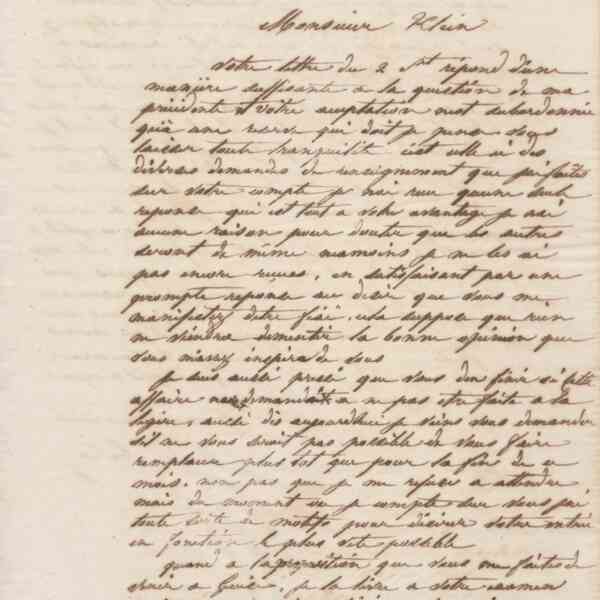 Monsieur Klein
Votre lettre du 2 st répond d'une
manière suffisante a la question de ma
précédente & votre acceptation n'est subordonnée
qu'à une reserve qui doit je pense vous
laisser toute tranquilité c'est celle ci des
diverses demandes de renseignement que j'ai faites
sur votre compte je n'ai reçu qu'une seule
reponse qui est tout a votre avantage je n'ai
aucune raison pour douter que les autres
seront de même neamoins je ne les ai
pas encore reçues, en satisfaisant par une
prompte reponse au desir que vous me
manifestez d'etre fixé, cela suppose que rien
ne viendra dementir la bonne opinion que
vous m'avez inspirée de vous
Je suis aussi pressé que vous d'en finir si cette
affaire ne demandait a ne pas etre faite a la
légère, aussi dès aujourdhui je viens vous demander
s'il ne vous serait pas possible de vous faire
remplacer plus tot que pour la fin de ce
mois, non pas que je me refuse a attendre
mais du moment ou je compte sur vous j'ai
toute sorte de motifs pour désirer votre entrée
en fonction le plus vite possible
quand a la proposition que vous me faites de
a je la livre a votre examen